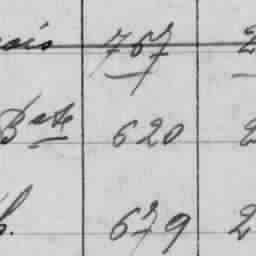 ois 767 2
Bte 620 2
h. 679 2